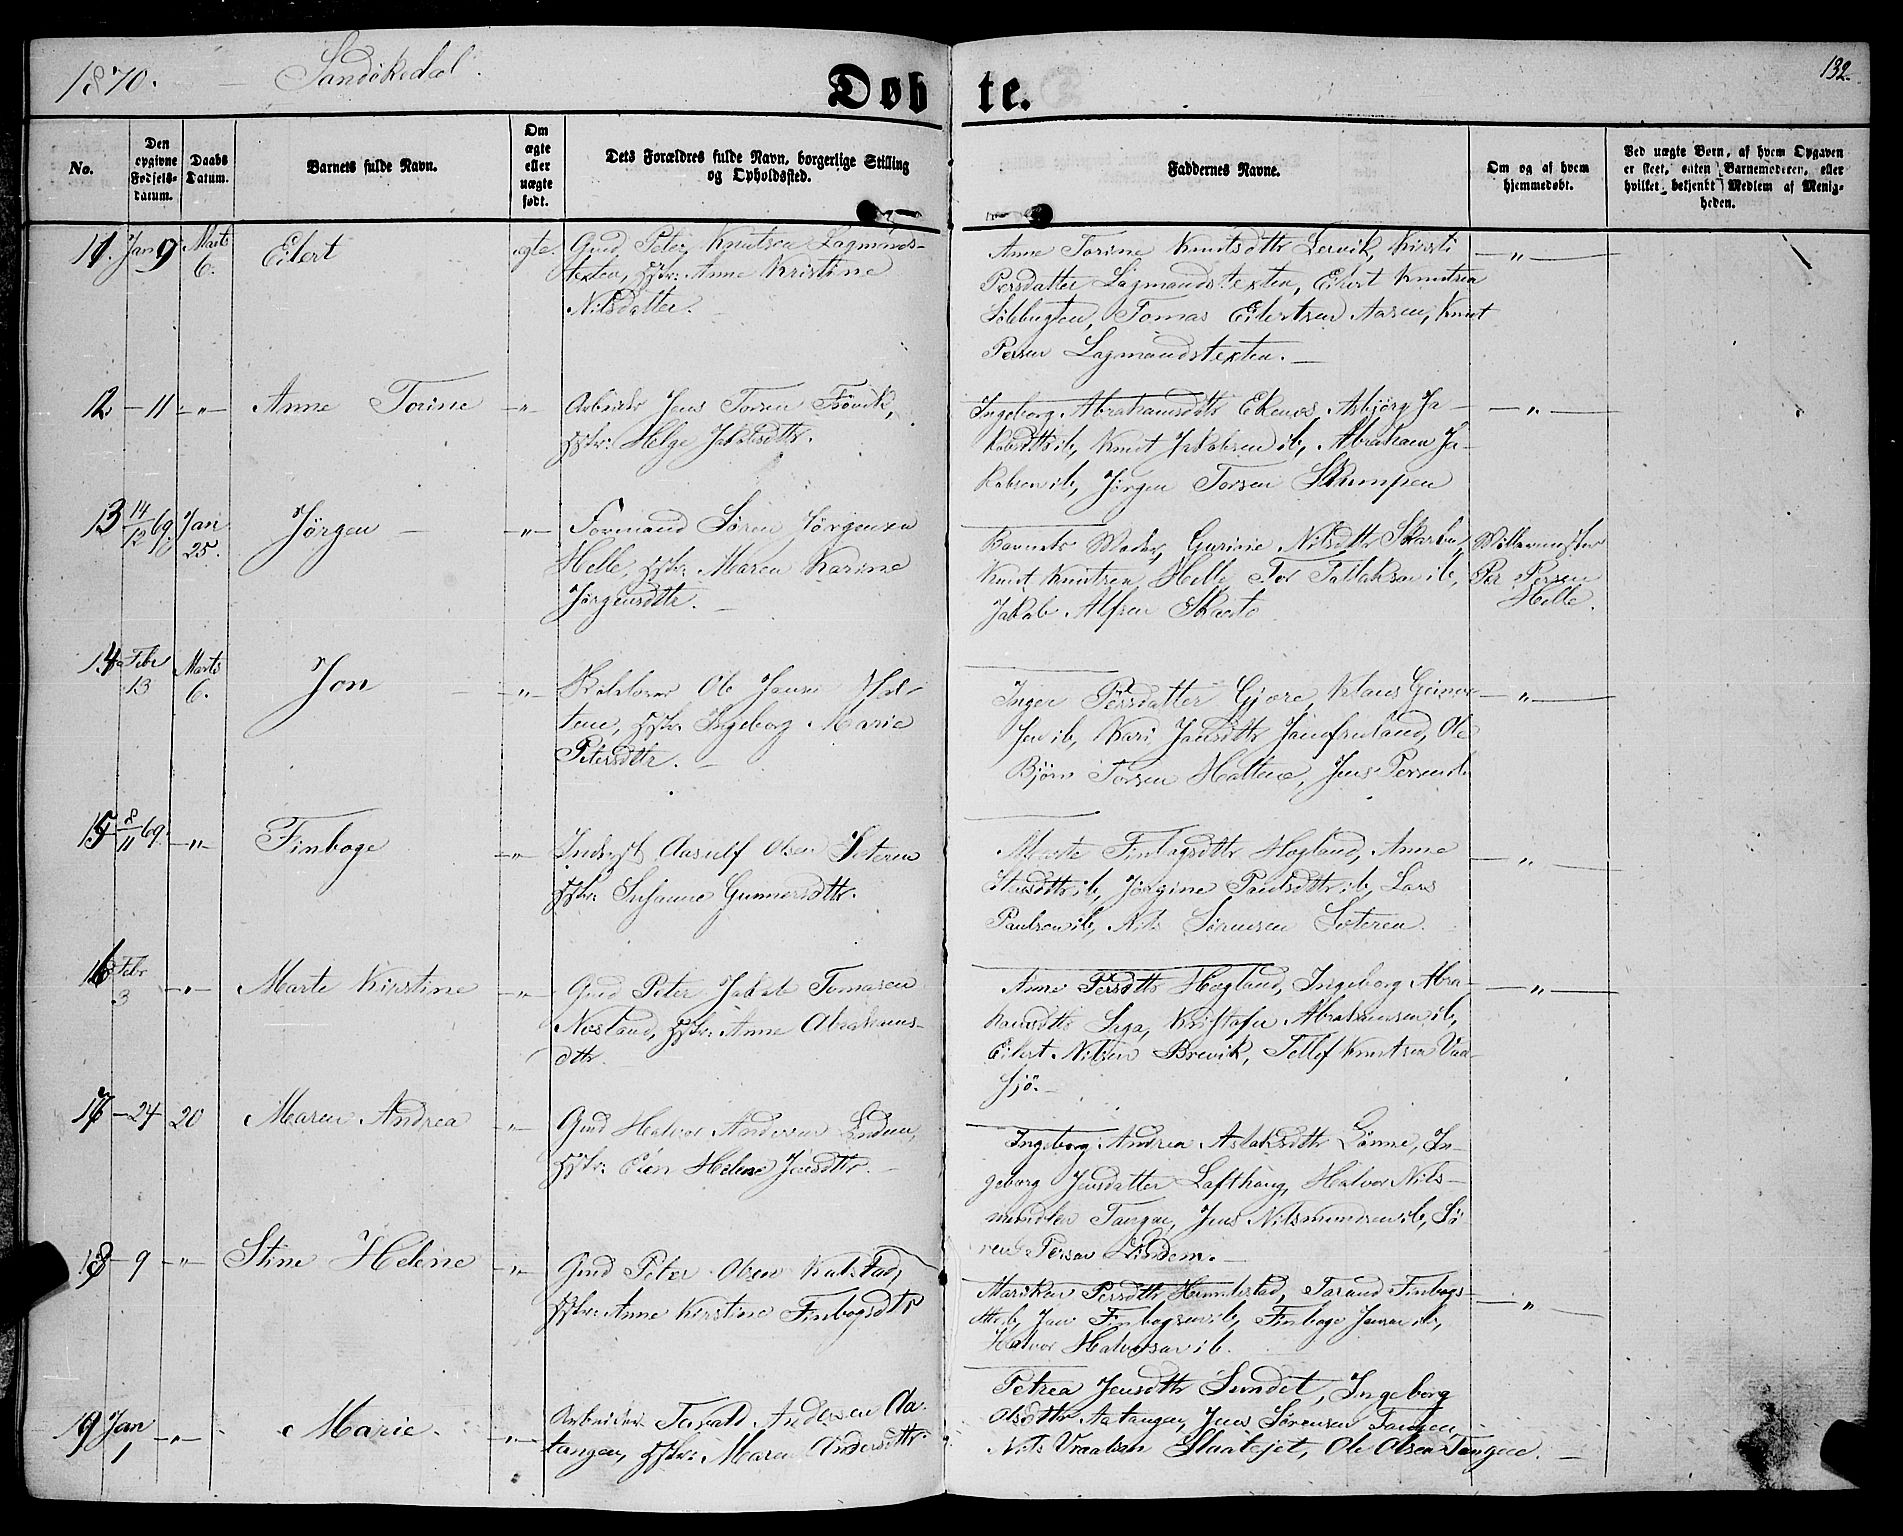 1870. — Sandøkedal.
Døbte.
132.
No.
Den opgivne Fødsels-datum.
Daabs Datum.
Barnets fulde Navn.
Om ægte eller uægte født.
Dets Forældres fulde Navn, borgerlige Stilling og Opholdssted.
Faddernes Navne.
Om og af hvem hjemmedøbt.
Ved uægte Børn, af hvem Opgaven er skeet, enten Barnemoderen, eller hvilket bekjendt Medlem af Menigheden.
11. Jan 9 Marts 6. Eilert ægte. Gmd Peter Knutsen Lagmands-
texten, Hstr: Anne Kristine
Nilsdatter.
Anne Torine Knutsdttr Lervik, Kirsti — „ —
Persdatter Lagmandstexten, Eilert Knutsen
Tomas Eilertsen Aasen, Knut
Persen Lagmandstexten. —
12. — 11 — „ — Anne Torine — „ — Arbeider Jens Torsen
Hstr: Helge Jakobsdttr.
Ingeborg Abrahamsdttr Ekenes, Asbjørg Ja- — „ —
kobsdttr ib, Knut Jakobsen ib, Abraham Ja-
kobsen ib, Jørgen Torsen Skumpen
13 14/12 69. Jan 25. Jørgen — „ — Formand Søren Jørgensen
Helle, Hstr: Maren Karine
Jørgensdttr. —
Barnets Moder, Gurine Nilsdttr
Knut Knutsen Helle, Tor Tallaksen ib,
Jakob Alfsen
Per Persen
Helle.
14 Febr 13 Marts 6. Jon — „ — Ole Jansen Hal-
tene, Hstr: Ingeborg Marie
Petersdttr. —
Inger Persdatter Gjære, Klaus — „ —
ib, Kari Jansdttr Jomfruland, Ole
Bjørn Torsen Haltene, Jens Persen ib
15 8/11 69. — „ — Finboge — „ — Aasulf Olsen Seteren
Hstr: Susanne Gunnersdttr.
Marte Finbogsdttr Hogland, Anne — „ —
ib, Jørgine Paulsdttr ib, Lars
Paulsen ib, Nils Sørensen Seteren.
16 Febr 3 — „ — Marte Kirstine — „ — Gmd Peter Jakob Tomasen
Nesland, Hstr: Anne Abrahams-
dttr.
Anne Persdttr Hogland, Ingeborg Abra- — „ —
hamsdttr Kristofer Abrahamsen ib,
Eilert Nilsen Brevik, Tellef Knutsen Vad-
sjø. —
17 — 24 20 Maren Andrea — „ — Gmd Halvor Andersen Lindem,
Hstr: Helene Jensdttr. —
Ingeborg Andrea Aslaksdttr Lønne, In-
geborg Jensdatter Lofthaug, Halvor Nils-
Jens Nilsmundsen ib, Sø-
ren Persen Lindem. —
18 — 9 „ Stine Helene — „ — Gmd Peter Olsen Kalstad,
Hstr: Anne Kirstine Finbogsdttr
Mariken Persdttr Hummelstad, Tarand Finbogs- — „ —
dttr ib, Jan Finbogsen ib, Finboge Jansen ib,
Halvor Halvorsen ib.
19 Jan 1 — „ — Marie. — „ — Arbeider Torvald Andersen Aa-
tangen, Hstr: Maren Andersdttr.
Petrea Jensdttr Sundet, Ingeborg
Olsdttr Aatangen, Jens Sørensen Tangen,
Nils Vraalsen Slaatejet, Ole Olsen Tangen. —